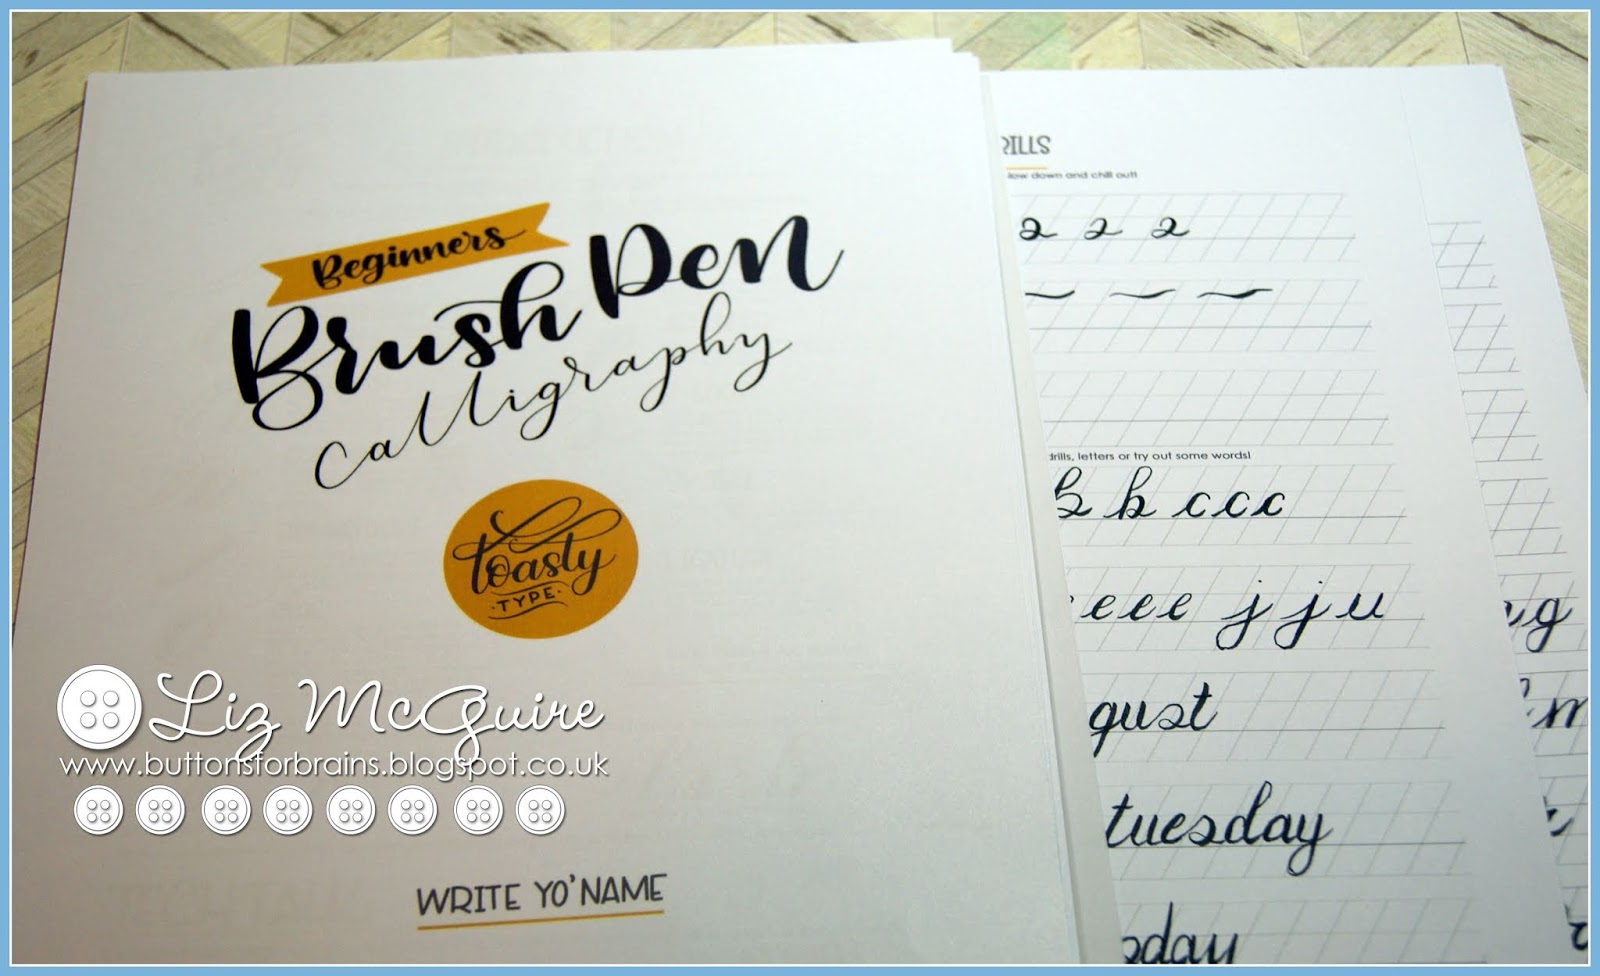 Beginners
Brush Pen
Calligraphy
toasty
·TYPE·
Liz McGuire
www.buttonsforbrains.blogspot.co.uk
WRITE YO'NAME
RILLS
slow down and chill out!
a a a
drills, letters or try out some words!
b b c c c
e e e j j u
gust
tuesday
sday